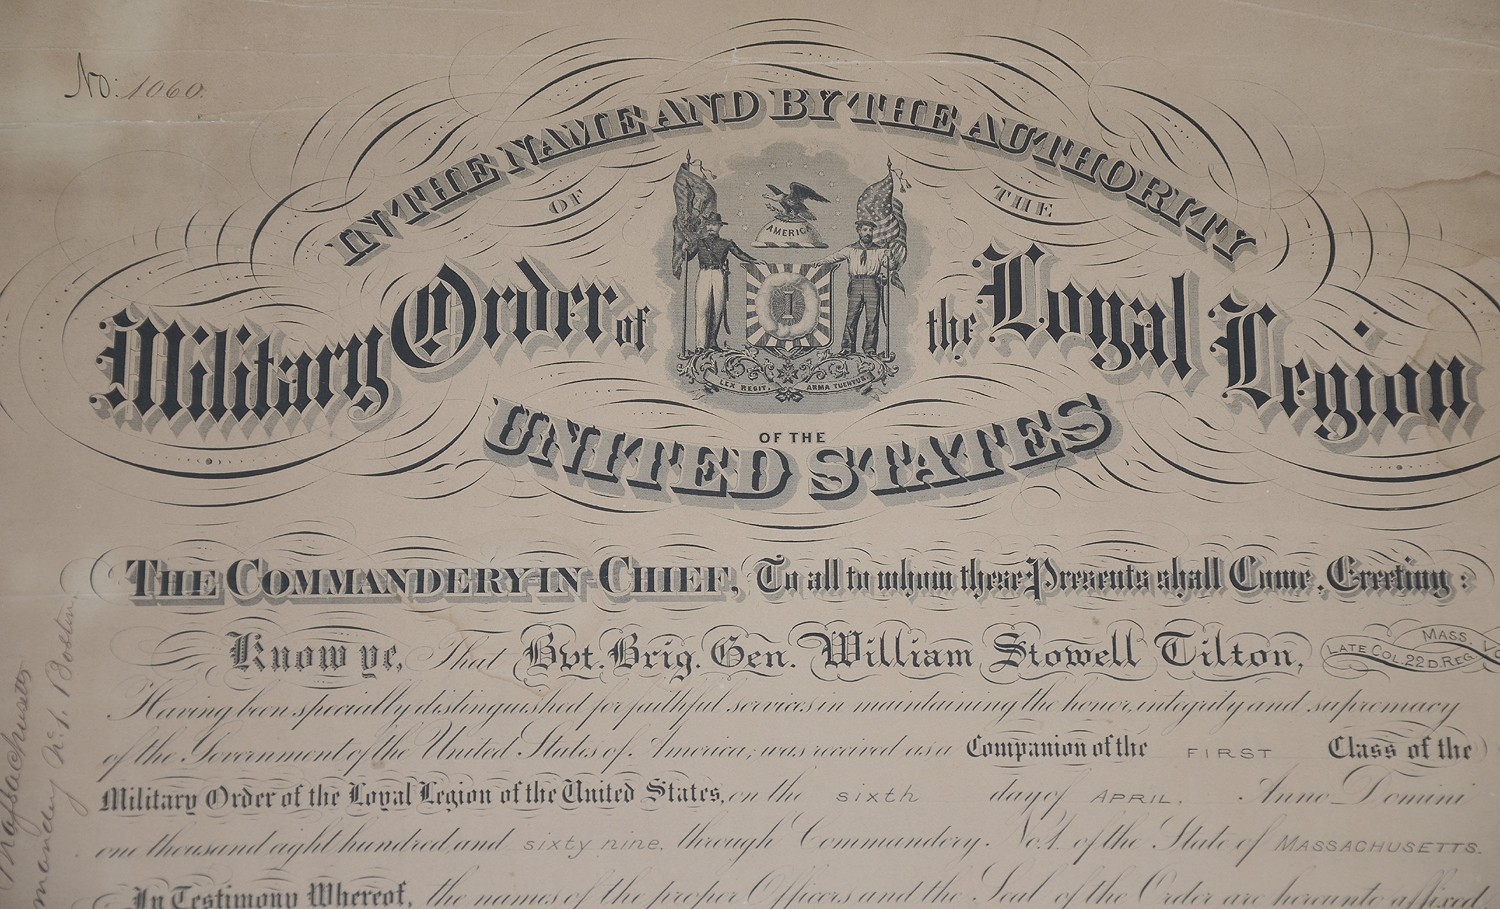 No: 1060.
IN THE NAME AND BY THE AUTHORITY
OF THE
AMERICA
Military Order of the Loyal Legion
I
LEX REGIT, ARMA TUENTUR
OF THE
UNITED STATES
THE COMMANDERY-IN-CHIEF, To all to whom these Presents shall Come, Greeting:
Know ye, That Bvt. Brig. Gen. William Stowell Tilton, LATE COL. 22D. REG. MASS. VO
Having been specially distinguished for faithful services in maintaining the honor, integrity and supremacy
of the Government of the United States of America, was received as a Companion of the FIRST Class of the
Military Order of the Loyal Legion of the United States, on the sixth day of APRIL, Anno Domini
one thousand eight hundred and sixty nine, through Commandery No. 1. of the State of MASSACHUSETTS.
In Testimony Whereof, the names of the proper Officers and the Seal of the Order are hereunto affixed.
Massachusetts
mandery No. 1. Boston.